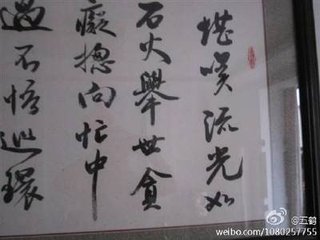 堪嘆流光如
石火舉世貪
癡摠向忙中
過不悟巡環
@五鹤
weibo.com/1080257755